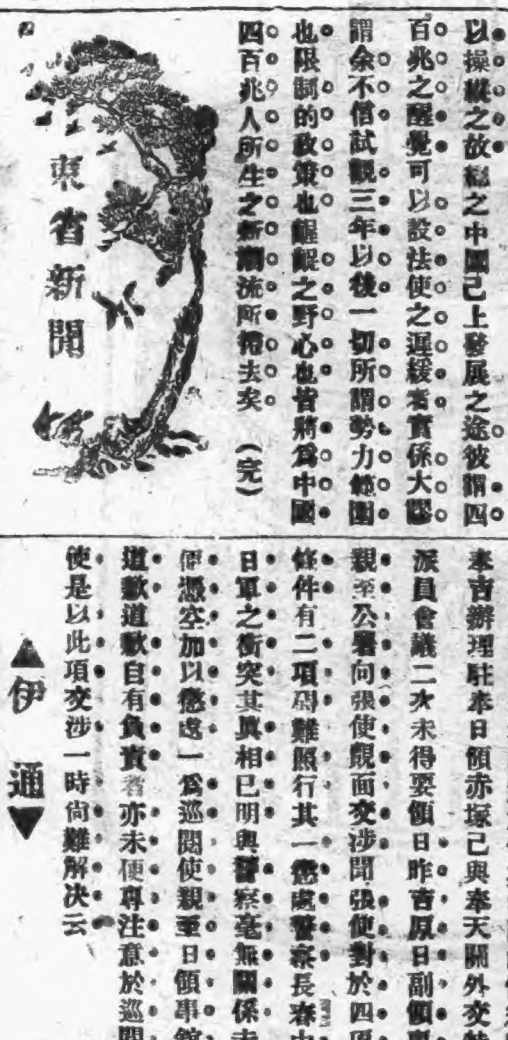 以操縱之故總之中國已上發展之途彼謂四
百兆之醒覺可以設法使之遲緩者實係大謬
謂余不信試觀三年以後一切所謂勢力範圍
也限制的政策也齷齪之野心也皆將爲中國
四百兆人所生之新潮流所捲去矣 (完)
東省新聞
奉吉辦理駐奉日領赤塚已與奉天關外交特
派員會議二次未得要領日昨吉原日副領事
親至公署向張使覿面交涉聞張使對於四項
條件有二項碍難照行其一懲處警察長春中
日軍之衝突其眞相已明與警察毫無關係未
便憑空加以懲處一爲巡閱使親至日領事館
道歉道歉自有負責者亦未便專注意於巡閱
使是以此項交涉一時尙難解决云
▲伊通▼